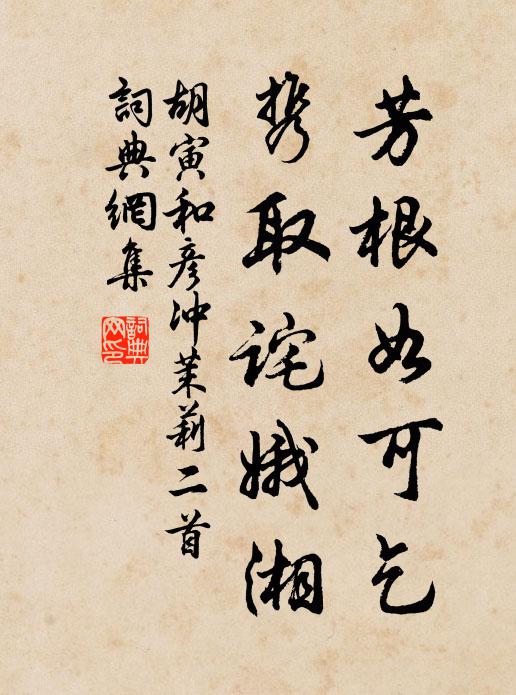 芳根如可乞
携取詫娥湘
胡寅和彦冲茉莉二首
詞典網集
詞典
网印